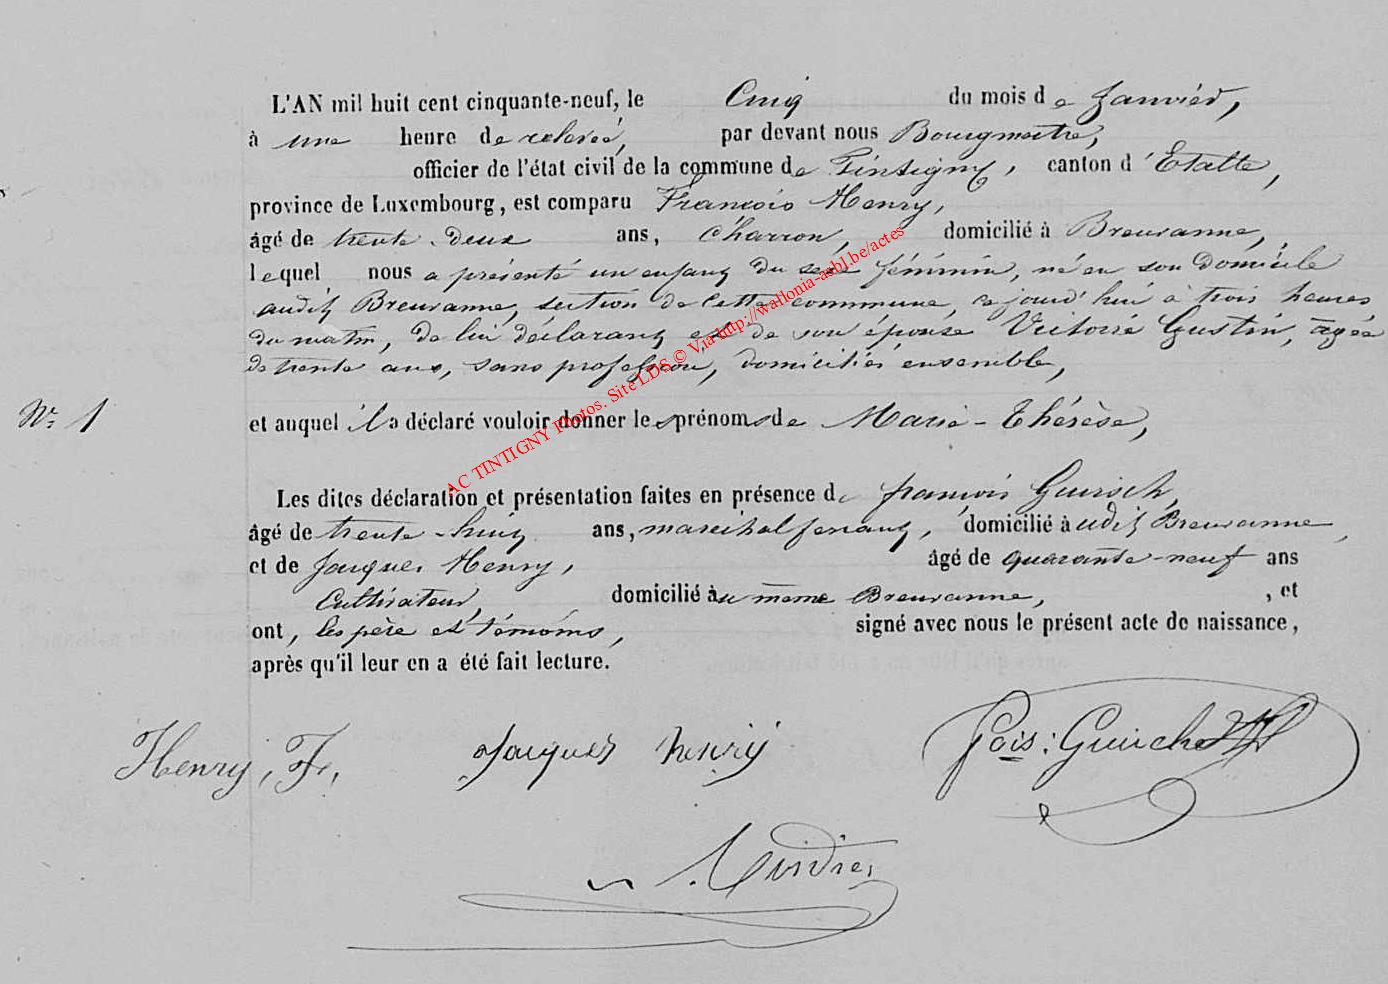 L'AN mil huit cent cinquante-neuf, le Cinq du mois de Janvier,
à une heure de relevée, par devant nous Bourgmestre,
officier de l'état civil de la commune de Tintigny, canton d'Etalle,
province de Luxembourg, est comparu François Henry,
âgé de trente-deux ans, Charron, domicilié à Breuvanne,
lequel nous a présenté un enfant du sexe féminin, né en son domicile
audit Breuvanne, section de cette commune, ce jourd'hui à trois heures
du matin, de lui déclarant et de son épouse Victoire Gustin, agée
de trente ans, sans profession, domiciliés ensemble,
Nr. 1
et auquel il a déclaré vouloir donner les prénoms de Marie-Thérèse,
Les dites déclaration et présentation faites en présence de françois Guirsch,
âgé de trente-huit ans, maréchal ferrant, domicilié à udit Breuvanne,
et de Jacques Henry, âgé de quarante-neuf ans
Cultivateur, domicilié au même Breuvanne, , et
ont, les père et témoins, signé avec nous le présent acte de naissance,
après qu'il leur en a été fait lecture.
Henry, F. Jacques henry fois: Guirche
AC TINTIGNY Photos. Site LDS © Via http://wallonia-asbl.be/actes